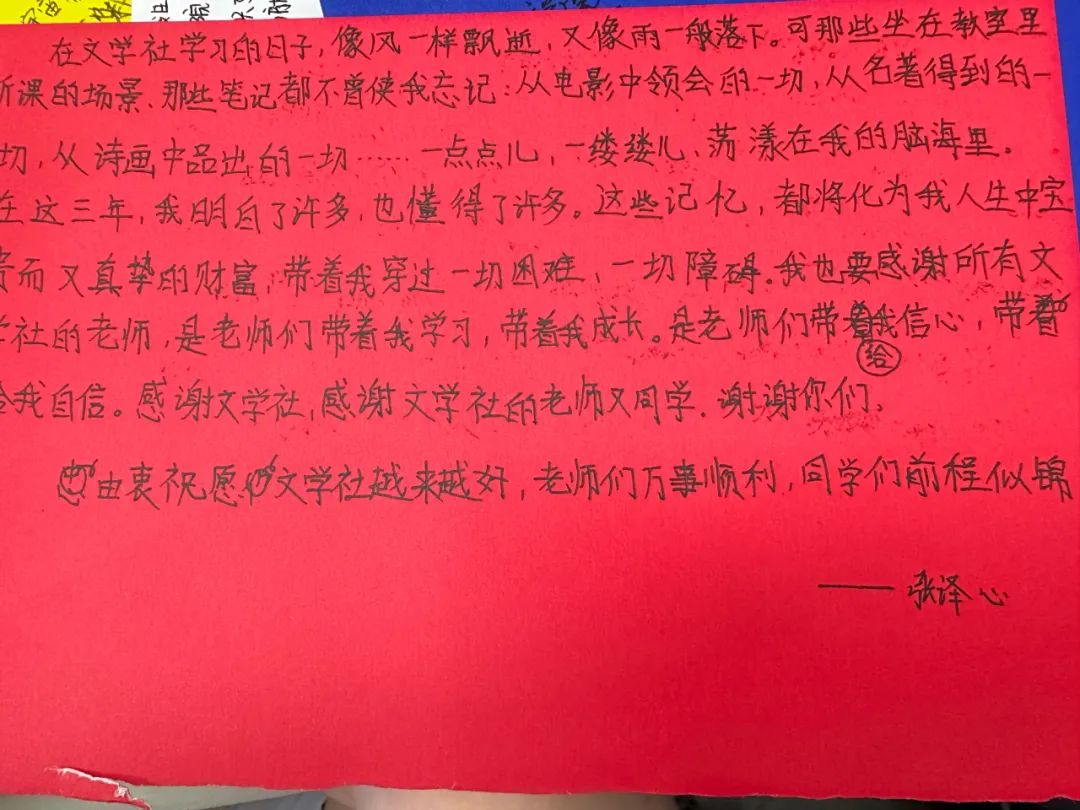 在文学社学习的日子，像风一样飘逝，又像雨一般落下。可那些坐在教室里
听课的场景、那些笔记都不曾使我忘记：从电影中领会的一切，从名著得到的一
切，从诗画中品出的一切……一点点儿，一缕缕儿，荡漾在我的脑海里。
在这三年，我明白了许多，也懂得了许多。这些记忆，都将化为我人生中宝
贵而又真挚的财富，带着我穿过一切困难，一切障碍。我也要感谢所有文
学社的老师，是老师们带着我学习，带着我成长。是老师们带给我信心，带
给我自信。感谢文学社，感谢文学社的老师又同学，谢谢你们。
由衷祝愿文学社越来越好，老师们万事顺利，同学们前程似锦
——张泽心